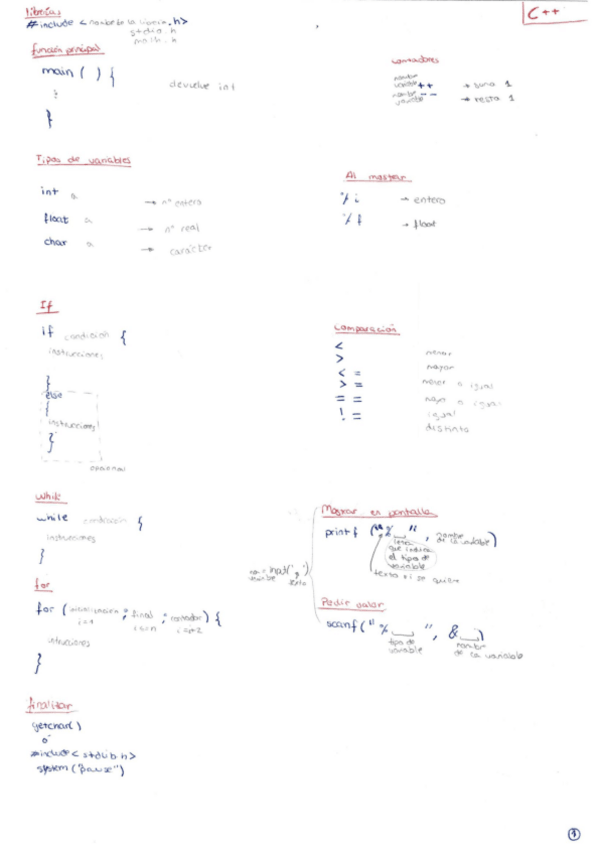 C++
librerías
#include <nombre de la librería.h>
stdio.h
math.h
función principal
main ( ) {
}
devuelve int
contadores
nombre
variable ++ → suma 1
nombre
variable -- → resta 1
Tipos de variables
int a → nº entero
float a → nº real
char a → carácter
Al mostrar
%i → entero
%f → float
If
if condición {
instrucciones
}
else
{
instrucciones
}
opcional
Comparación
< menor
> mayor
<= menor o igual
>= mayor o igual
== igual
!= distinto
While
while condición {
instrucciones
}
for
for (inicialización ; final ; contador) {
i=1
instrucciones
}
Mostrar en pantalla
printf ("% ", nombre de la variable)
letra
que indica
el tipo de
variable
texto si se quiere
variable
texto
Pedir valor
scanf("% ", & )
tipo de
variable
nombre
de la variable
finalizar
getchar()
o
#include <stdlib.h>
system ("Pause")
1